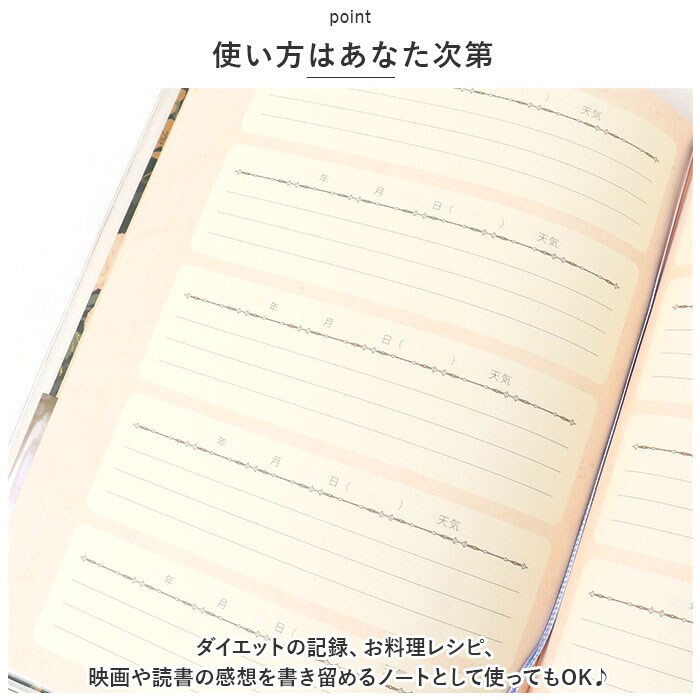 point
使い方はあなた次第
) 天気
年 月 日 ( ) 天気
年 月 日 ( ) 天気
年 月 日 ( ) 天気
年 月 日 (
ダイエットの記録、お料理レシピ、
映画や読書の感想を書き留めるノートとして使ってもOK♪